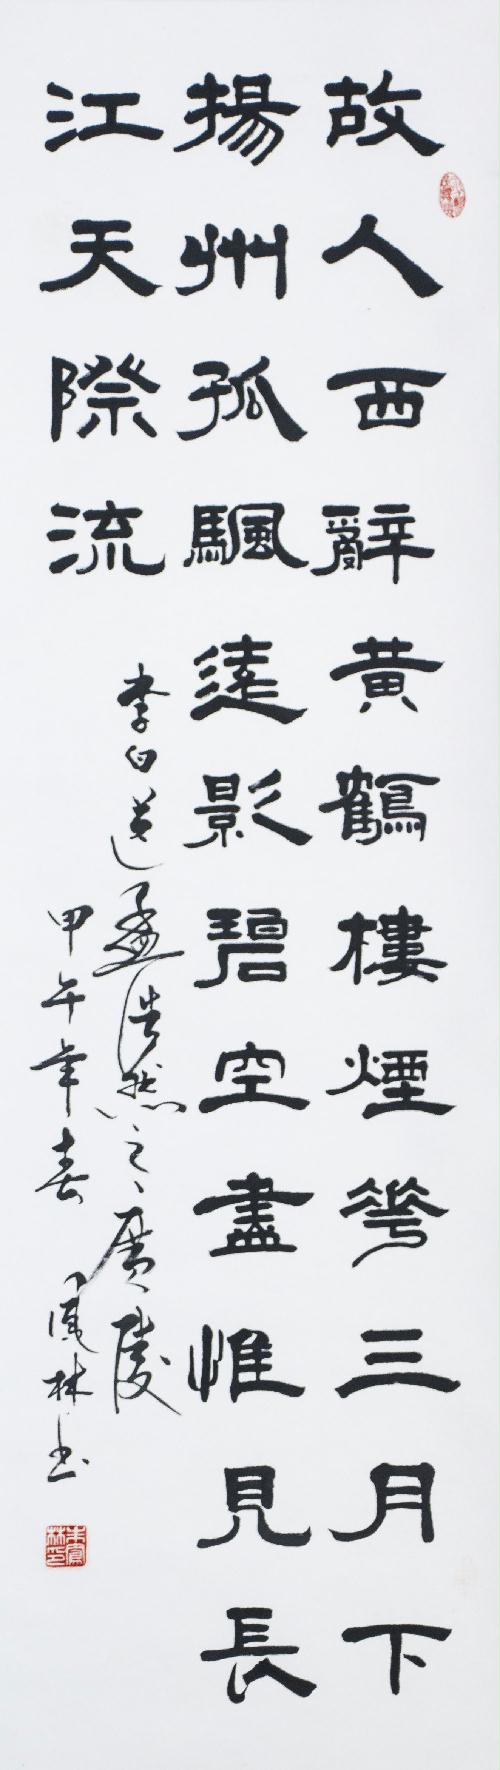 故人西辭黃鶴樓煙花三月下
揚州孤颿遠影碧空盡惟見長
江天際流
李白送孟浩然之廣陵
甲午年春 鳳林书